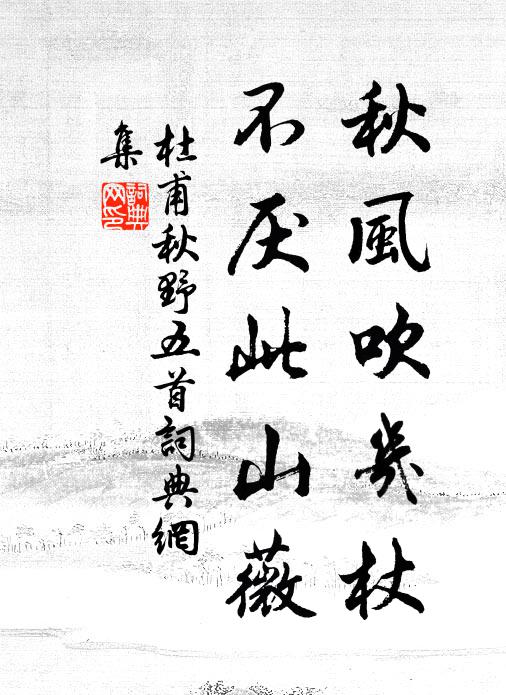 秋風吹幾杖
不厌此山薇
杜甫秋野五首詞典網
集
詞典
网印